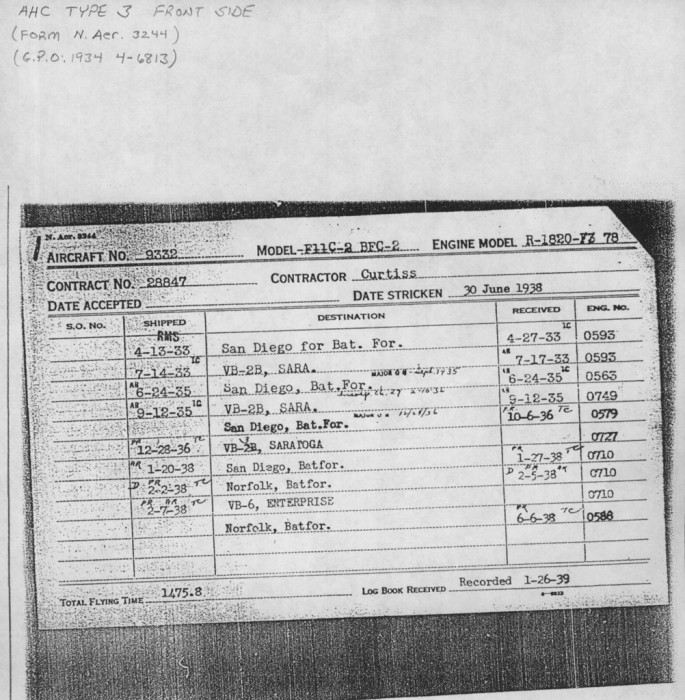 AHC TYPE 3 FRONT SIDE
(FORM N. Aer. 3244)
(G.P.O. 1934 4-6813)
N. Aer. 3244
AIRCRAFT NO. 9332 MODEL F11C-2 BFC-2 ENGINE MODEL R-1820-73 78
CONTRACT NO. 28847 CONTRACTOR Curtiss
DATE ACCEPTED DATE STRICKEN 30 June 1938
S.O. NO. SHIPPED DESTINATION RECEIVED ENG. NO.
RMS
4-13-33 San Diego for Bat. For. 4-27-33 IC 0593
7-14-33 IC VB-2B, SARA. AR 7-17-33 0593
AR 6-24-35 San Diego, Bat.For. AR 6-24-35 IC 0563
AR 9-12-35 IC VB-2B, SARA. AR 9-12-35 0749
San Diego, Bat.For. 10-6-36 TC 0579
12-28-36 TC VB-2B, SARATOGA 0727
AR 1-20-38 San Diego, Batfor. 1-27-38 TC 0710
D 2-2-38 TC Norfolk, Batfor. D 2-5-38 0710
2-7-38 TC VB-6, ENTERPRISE 0710
Norfolk, Batfor. 6-6-38 TC 0588
TOTAL FLYING TIME 1475.8 LOG BOOK RECEIVED Recorded 1-26-39